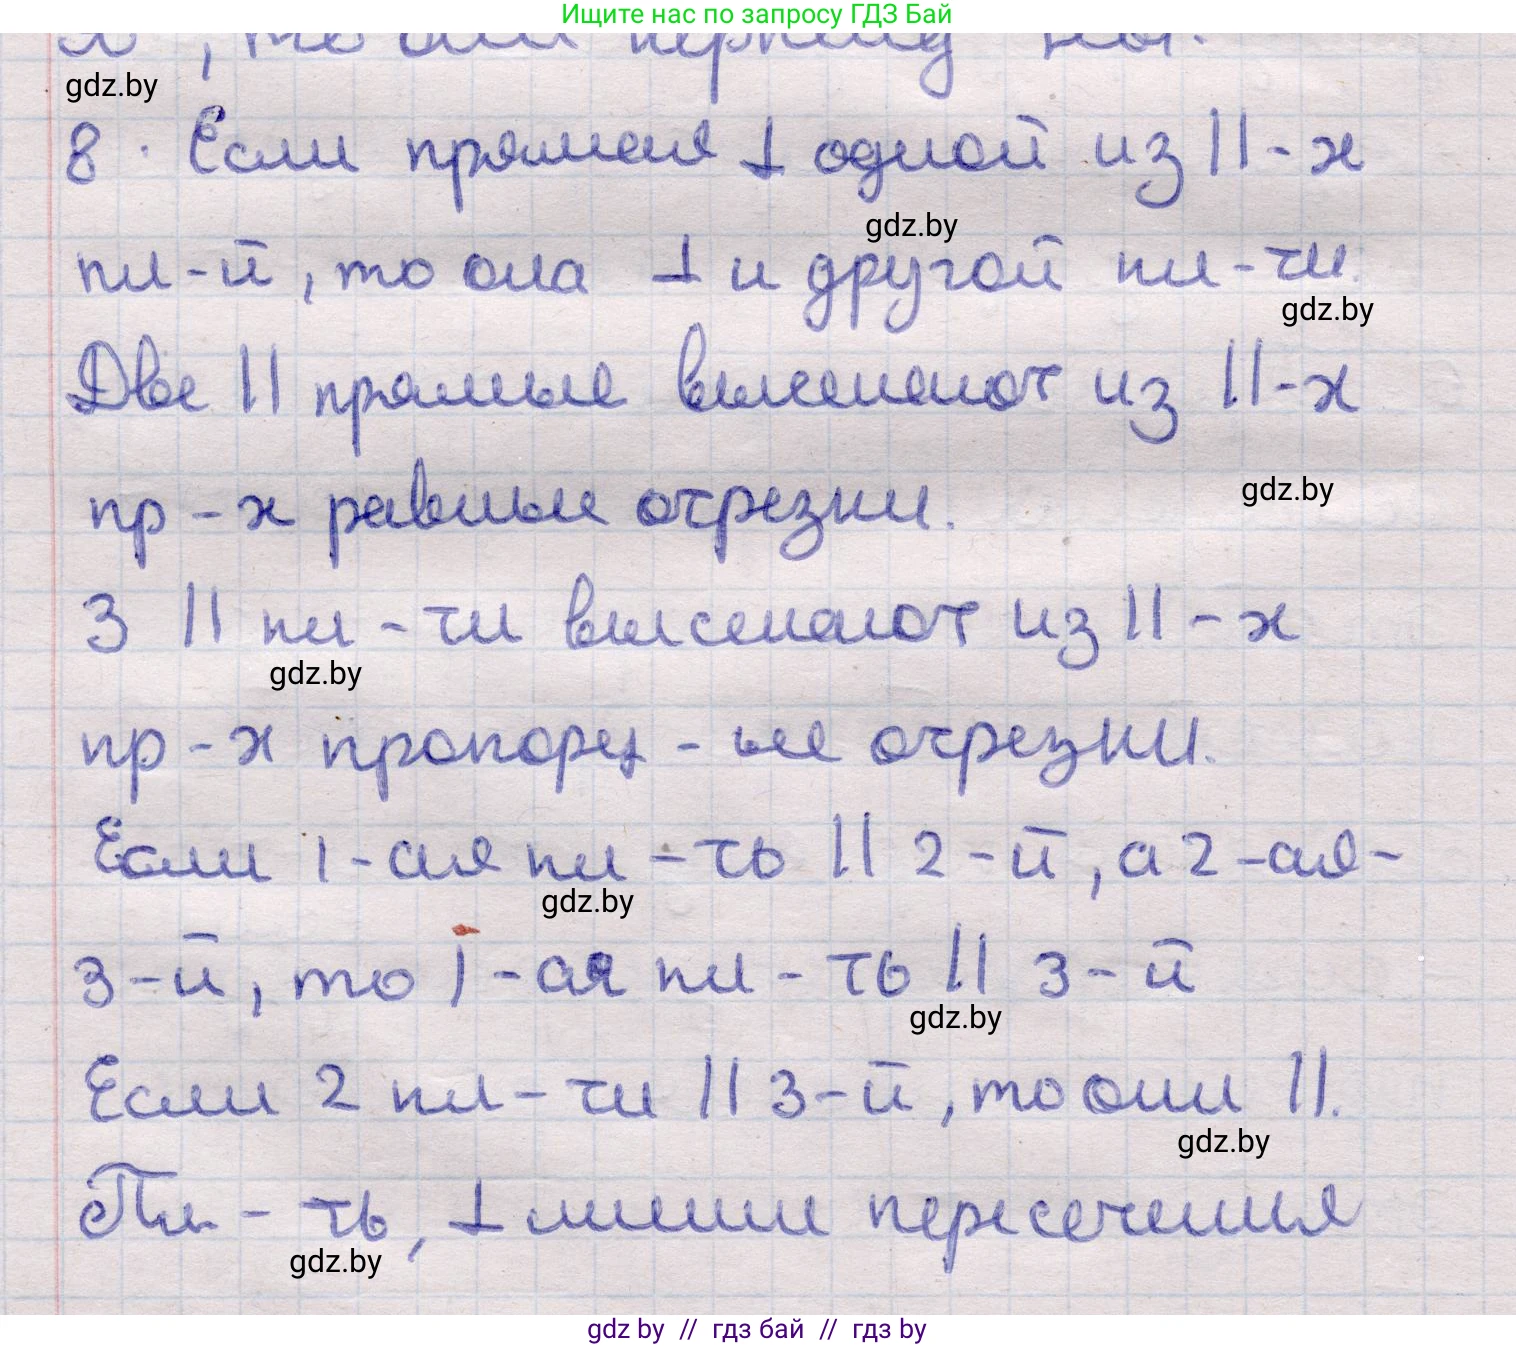 Ищите нас по запросу ГДЗ Бай
gdz.by
8. Если прямая ⊥ одной из ||-х
gdz.by
пл-й, то она ⊥ и другой пл-чи.
gdz.by
Две || прямые высекают из ||-х
пр-х равные отрезки.
gdz.by
3 || пл-ти высекают из ||-х
gdz.by
пр-х пропорц-ые отрезки.
Если 1-ая пл-ть || 2-й, а 2-ая-
gdz.by
3-й, то 1-ая пл-ть || 3-й
gdz.by
Если 2 пл-ти || 3-й, то они ||.
gdz.by
Пл-ть, ⊥ линии пересечения
gdz.by
gdz by // гдз бай // гдз by